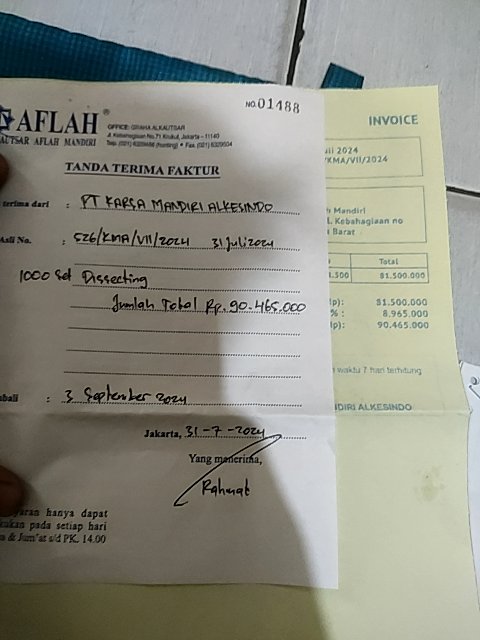 NO. 01488
AFLAH®
AUTSAR AFLAH MANDIRI
OFFICE: GRAHA ALKAUTSAR
Jl. Kebahagiaan No.71 Krukut, Jakarta - 11140
Telp. (021) 6329488 (hunting) • Fax. (021) 6329334
TANDA TERIMA FAKTUR
terima dari : PT KARSA MANDIRI ALKESINDO
Asli No. : 526/KMA/VII/2024 31 Juli 2024
1000 Set Dissecting
Jumlah Total Rp. 90.465.000
bali : 3 September 2024
Jakarta, 31-7-2024
Yang menerima,
Rahmat
yaran hanya dapat
kukan pada setiap hari
& Jum'at s/d PK. 14.00
INVOICE
uli 2024
/KMA/VII/2024
h Mandiri
l. Kebahagiaan no
Barat
Total
1.500 81.500.000
p): 81.500.000
% : 8.965.000
p): 90.465.000
waktu 7 hari terhitung
DIRI ALKESINDO